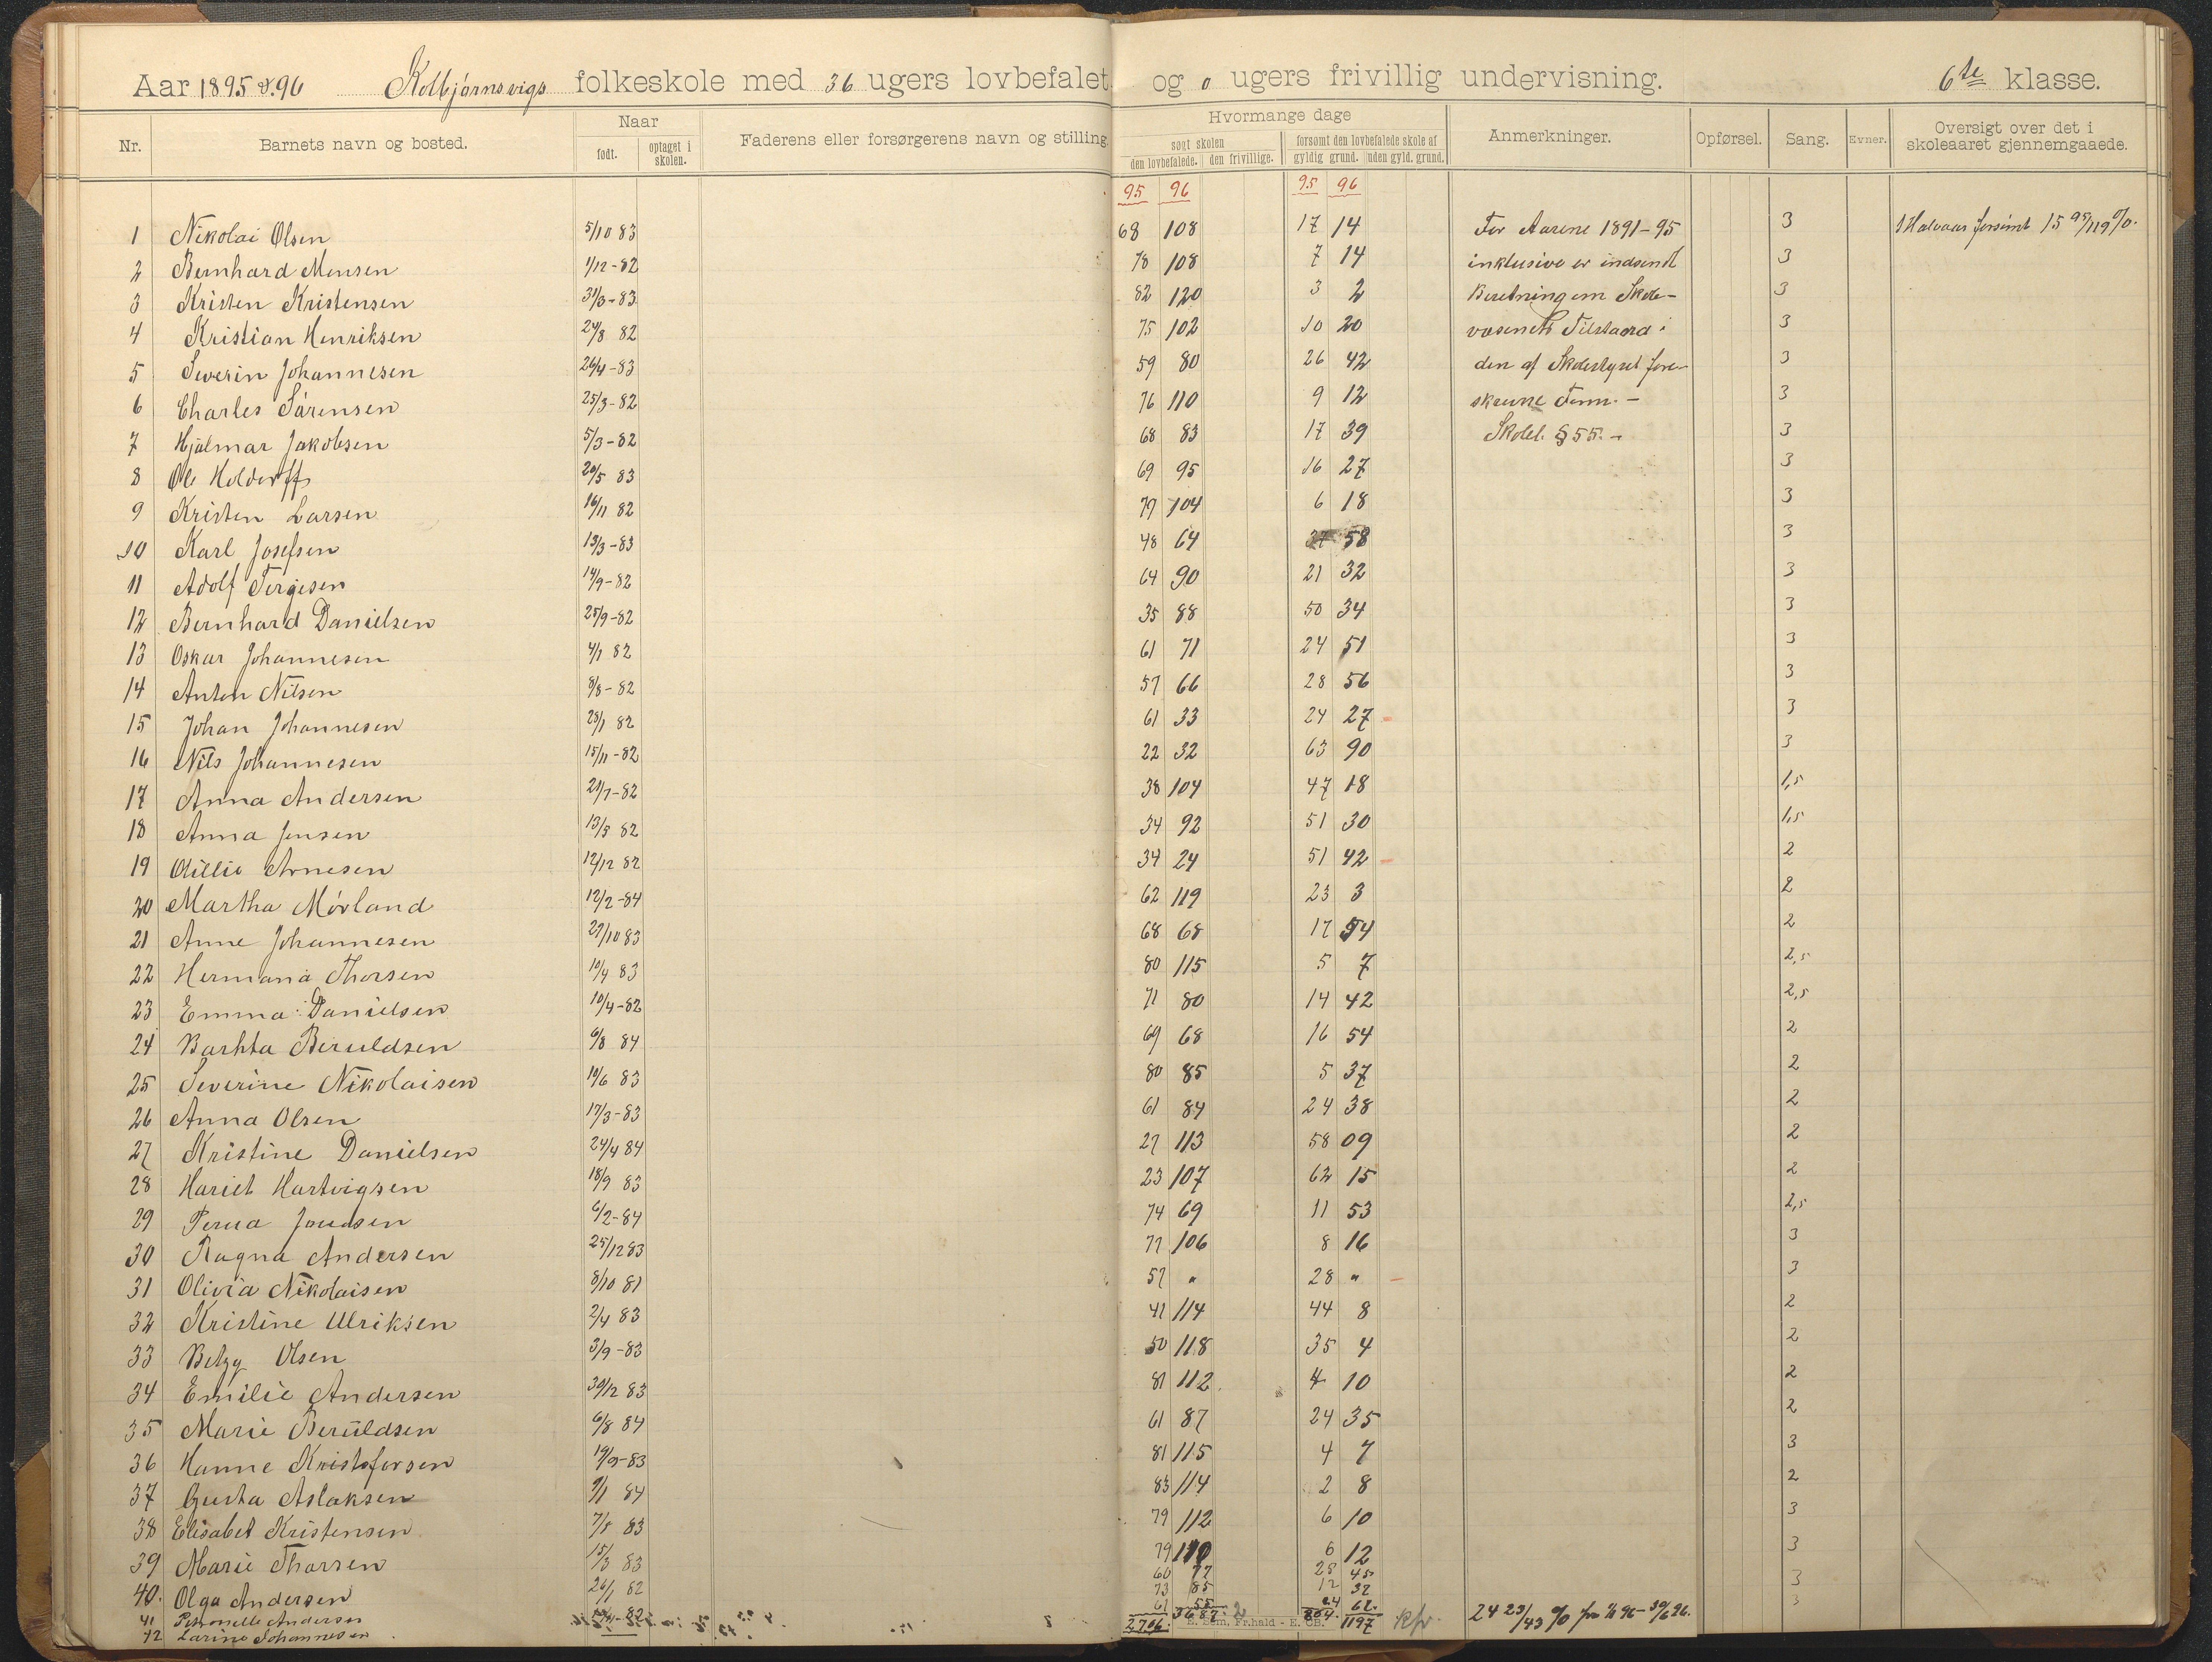 Aar 1895 & 96 Kolbjørnsvigs folkeskole med 36 ugers lovbefalet og 0 ugers frivillig undervisning. 6te klasse.
Nr. Barnets navn og bosted. Naar født. optaget i skolen. Faderens eller forsørgerens navn og stilling. Hvormange dage søgt skolen den lovbefalede. den frivillige. forsømt den lovbefalede skole af gyldig grund. uden gyld. grund. Anmerkninger. Opførsel. Sang. Evner. Oversigt over det i skoleaaret gjennemgaaede.
95 96 95 96
1 Nikolai Olsen 5/10 83 68 108 17 14 For Aarene 1891-95 3 1 Halvaar forsømt 15 95/119 %.
2 Bernhard Monsen 1/12-82 78 108 7 14 inklusive er indsendt 3
3 Kristen Kristensen 31/3-83 82 120 3 2 Beretning om Skole- 3
4 Kristian Henriksen 24/8 82 75 102 10 20 væsenets Tilstand i 3
5 Severin Johannesen 26/4-83 59 80 26 42 den af Skolestyret fore- 3
6 Charles Sørensen 25/3-82 76 110 9 12 skrevne Form. - 3
7 Hjalmar Jakobsen 5/3-82 68 83 17 39 Skolel. § 55. - 3
8 Ole Holdorff 20/5 83 69 95 16 27 3
9 Kristen Larsen 16/11 82 79 104 6 18 3
10 Karl Josefsen 13/3-83 48 64 58 3
11 Adolf Tergesen 14/9-82 64 90 21 32 3
12 Bernhard Danielsen 25/9-82 35 88 50 34 3
13 Oskar Johannesen 4/7 82 61 71 24 51 3
14 Anton Nilsen 8/8-82 57 66 28 56 3
15 Johan Johannesen 28/1 82 61 33 24 27 - 3
16 Nils Johannesen 15/11-82 22 32 63 90 3
17 Anna Andersen 21/7-82 38 104 47 18 1,5
18 Anna Jensen 13/5 82 34 92 51 30 1,5
19 Arnesen 12/12 82 34 24 51 42 - 2
20 Martha Mørland 12/2-84 62 119 23 3 2
21 Anne Johannesen 27/10 83 68 68 17 54 2
22 Hermana Thorsen 10/4 83 80 115 5 7 2,5
23 Emma Danielsen 10/4-82 71 80 14 42 2,5
24 Beruldsen 6/8 84 69 68 16 54 2
25 Severine Nikolaisen 10/6 83 80 85 5 37 2
26 Anna Olsen 17/3-83 61 84 24 38 2
27 Kristine Danielsen 24/4 84 27 113 58 09 2
28 Hariet Hartvigsen 18/9 83 23 107 62 15 2
29 6/2-84 74 69 11 53 2,5
30 Ragna Andersen 25/12 83 77 106 8 16 3
31 Olivia Nikolaisen 8/10 81 57 " 28 " - 3
32 Kristine Ulriksen 2/4 83 41 114 44 8 2
33 Betzy Olsen 3/9-83 50 118 35 4 2
34 Emilie Andersen 30/12 83 81 112 4 10 2
35 Marie Beruldsen 6/8 84 61 87 24 35 2
36 Hanne Kristofersen 19/9-83 81 115 4 7 3
37 Gusta Aslaksen 9/1 84 83 114 2 8 2
38 Elisabet Kristensen 7/5 83 79 112 6 10 3
39 Marie Thorsen 15/3 83 79 110 6 12 3
40. Olga Andersen 26/1 82 60 77 25 45 3
41 Petronelle Andersen 73 85 12 37 3
42 Larine Johannesen 61 24
2706. 3687. 804. 1197 24 23/43 % fra 1/1 96 - 30/6 96.
E. Sem, Fr.hald - E. CB.